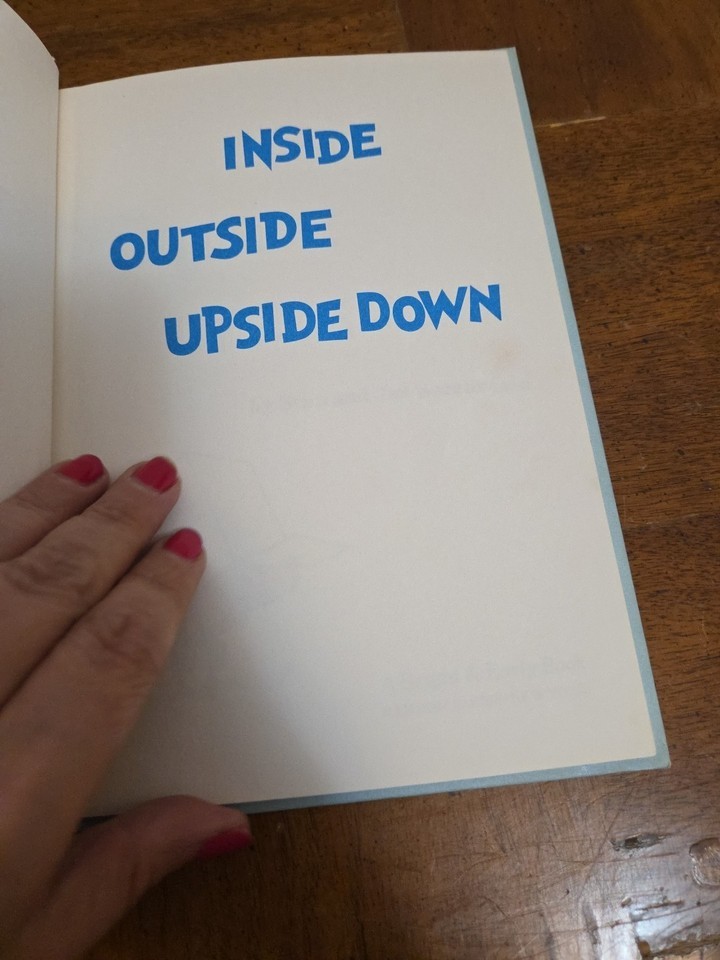 INSIDE
OUTSIDE
UPSIDE DOWN